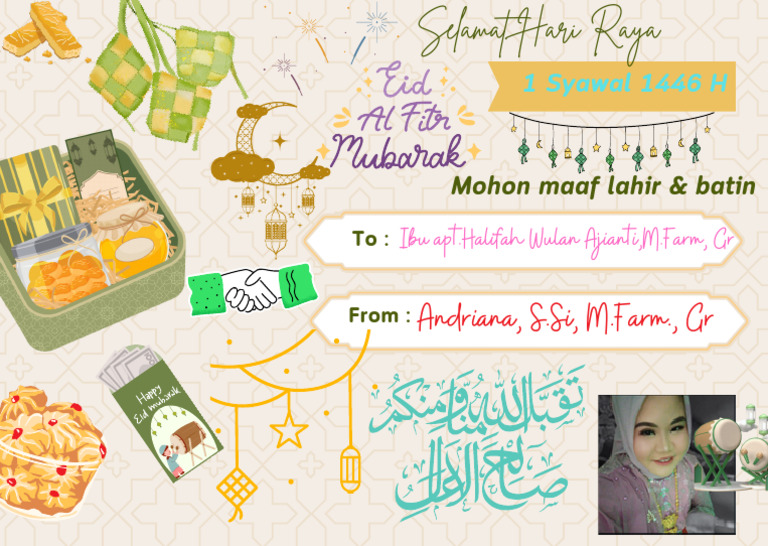 Selamat Hari Raya
1 Syawal 1446 H
Eid
Al Fitr
Mubarak
Mohon maaf lahir & batin
To : Ibu apt.Halifah Wulan Ajianti,M.Farm, Gr
From : Andriana, S.Si, M.Farm., Gr
Happy
Eid mubarak
تقبل الله منا ومنكم
صالح الأعمال